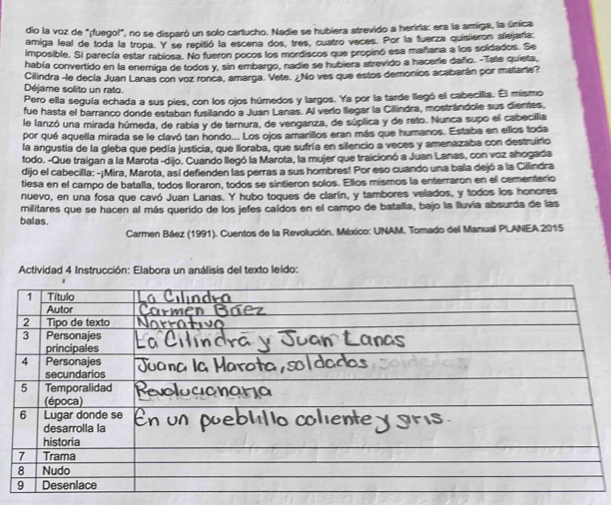 dio la voz de "¡fuego!", no se disparó un solo cartucho. Nadie se hubiera atrevido a herirla: era la amiga, la única
amiga leal de toda la tropa. Y se repitió la escena dos, tres, cuatro veces. Por la fuerza quisieron alejarla:
imposible. Sí parecía estar rabiosa. No fueron pocos los mordiscos que propinó esa mañana a los soldados. Se
había convertido en la enemiga de todos y, sin embargo, nadie se hubiera atrevido a hacerle daño. -Tate quieta,
Cilindra -le decía Juan Lanas con voz ronca, amarga. Vete. ¿No ves que estos demonios acabarán por matarte?
Déjame solito un rato.
Pero ella seguía echada a sus pies, con los ojos húmedos y largos. Ya por la tarde llegó el cabecilla. Él mismo
fue hasta el barranco donde estaban fusilando a Juan Lanas. Al verlo llegar la Cilindra, mostrándole sus dientes,
le lanzó una mirada húmeda, de rabia y de ternura, de venganza, de súplica y de reto. Nunca supo el cabecilla
por qué aquella mirada se le clavó tan hondo... Los ojos amarillos eran más que humanos. Estaba en ellos toda
la angustia de la gleba que pedía justicia, que lloraba, que sufría en silencio a veces y amenazaba con destruirlo
todo. -Que traigan a la Marota -dijo. Cuando llegó la Marota, la mujer que traicionó a Juan Lanas, con voz ahogada
dijo el cabecilla: -¡Mira, Marota, así defienden las perras a sus hombres! Por eso cuando una bala dejó a la Cilindra
tiesa en el campo de batalla, todos lloraron, todos se sintieron solos. Ellos mismos la enterraron en el cementerio
nuevo, en una fosa que cavó Juan Lanas. Y hubo toques de clarín, y tambores velados, y todos los honores
militares que se hacen al más querido de los jefes caídos en el campo de batalla, bajo la lluvia absurda de las
balas.
Carmen Báez (1991). Cuentos de la Revolución. México: UNAM. Tomado del Manual PLANEA 2015
Actividad 4 Instrucción: Elabora un análisis del texto leído:
1 Título La Cilindra
Autor Carmen Báez
2 Tipo de texto Narrativo
3 Personajes principales La Cilindra y Juan Lanas
4 Personajes secundarios Juana la Marota, soldados
5 Temporalidad (época) Revolucionaria
6 Lugar donde se desarrolla la historia En un pueblillo caliente y gris.
7 Trama
8 Nudo
9 Desenlace